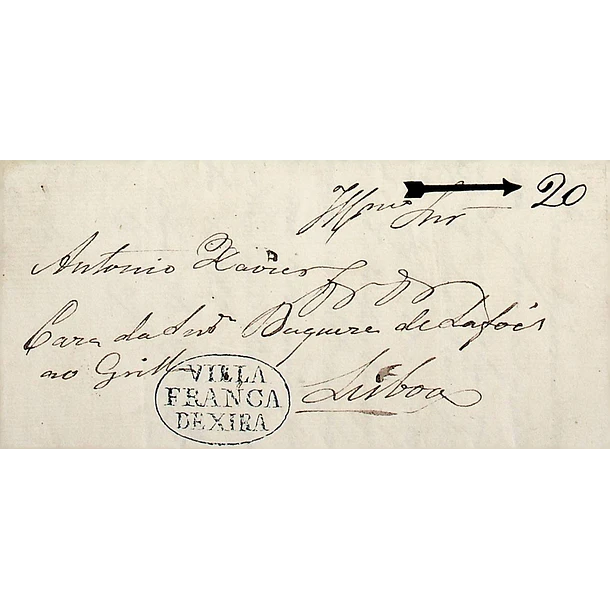 Illmo Snr 20
Antonio Xavier
Caza da Snra Duqueza de Lafões
ao Grillo
Lisboa
VILLA
FRANCA
DEXIRA